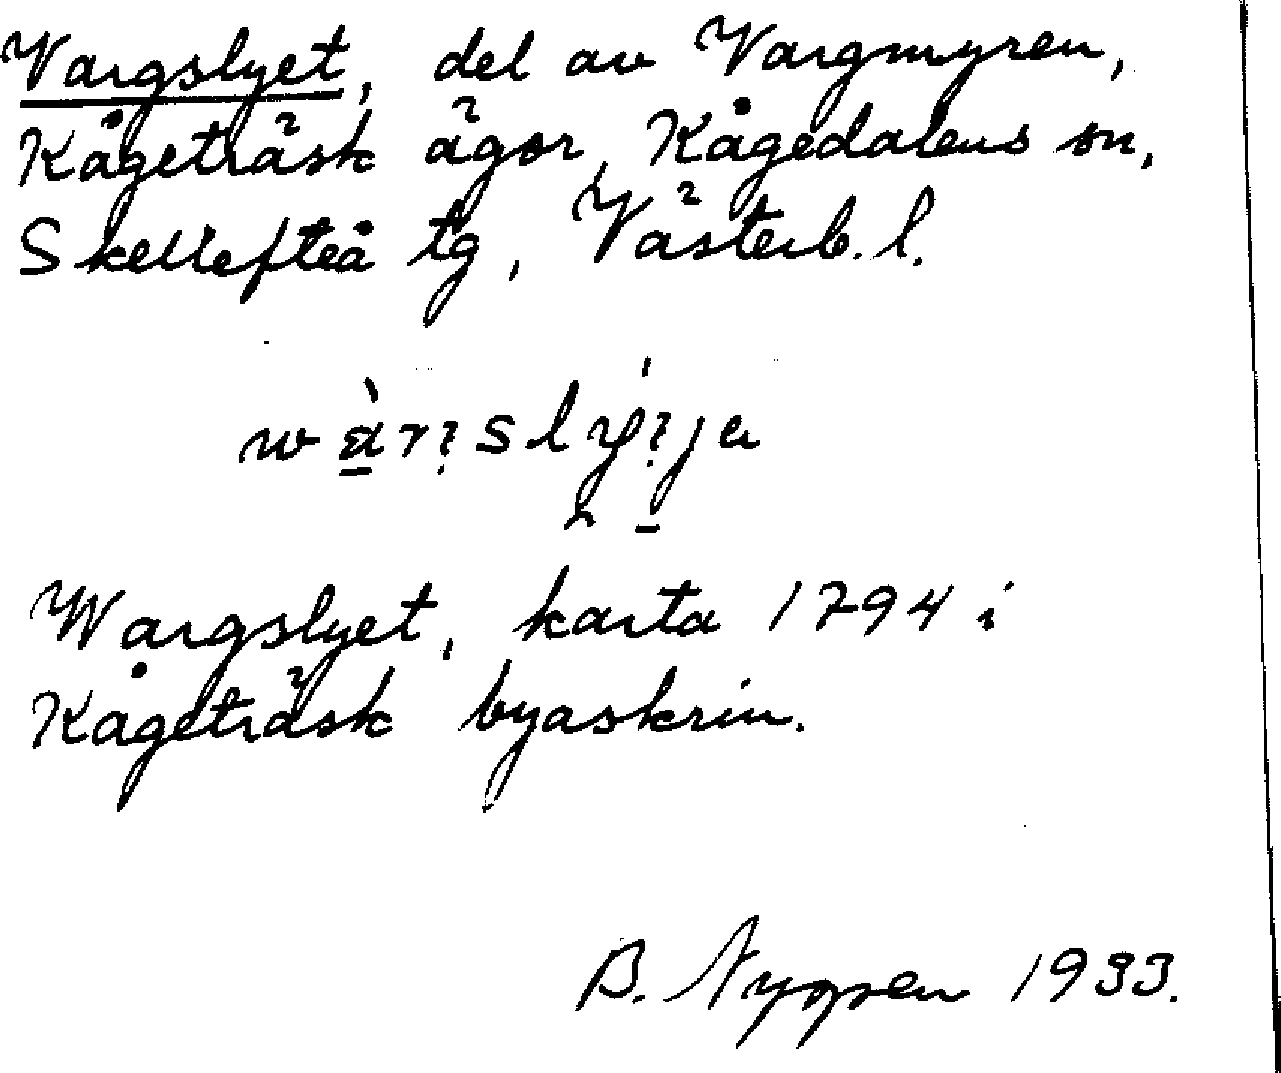 Vargslyet, del av Vargmyren,
Kågeträsk ägor, Kågedalens sn,
Skellefteå tg, Västerb. l.
Wargslyet, karta 1794 i
Kågeträsk byaskrin.
B. Nygren 1933.